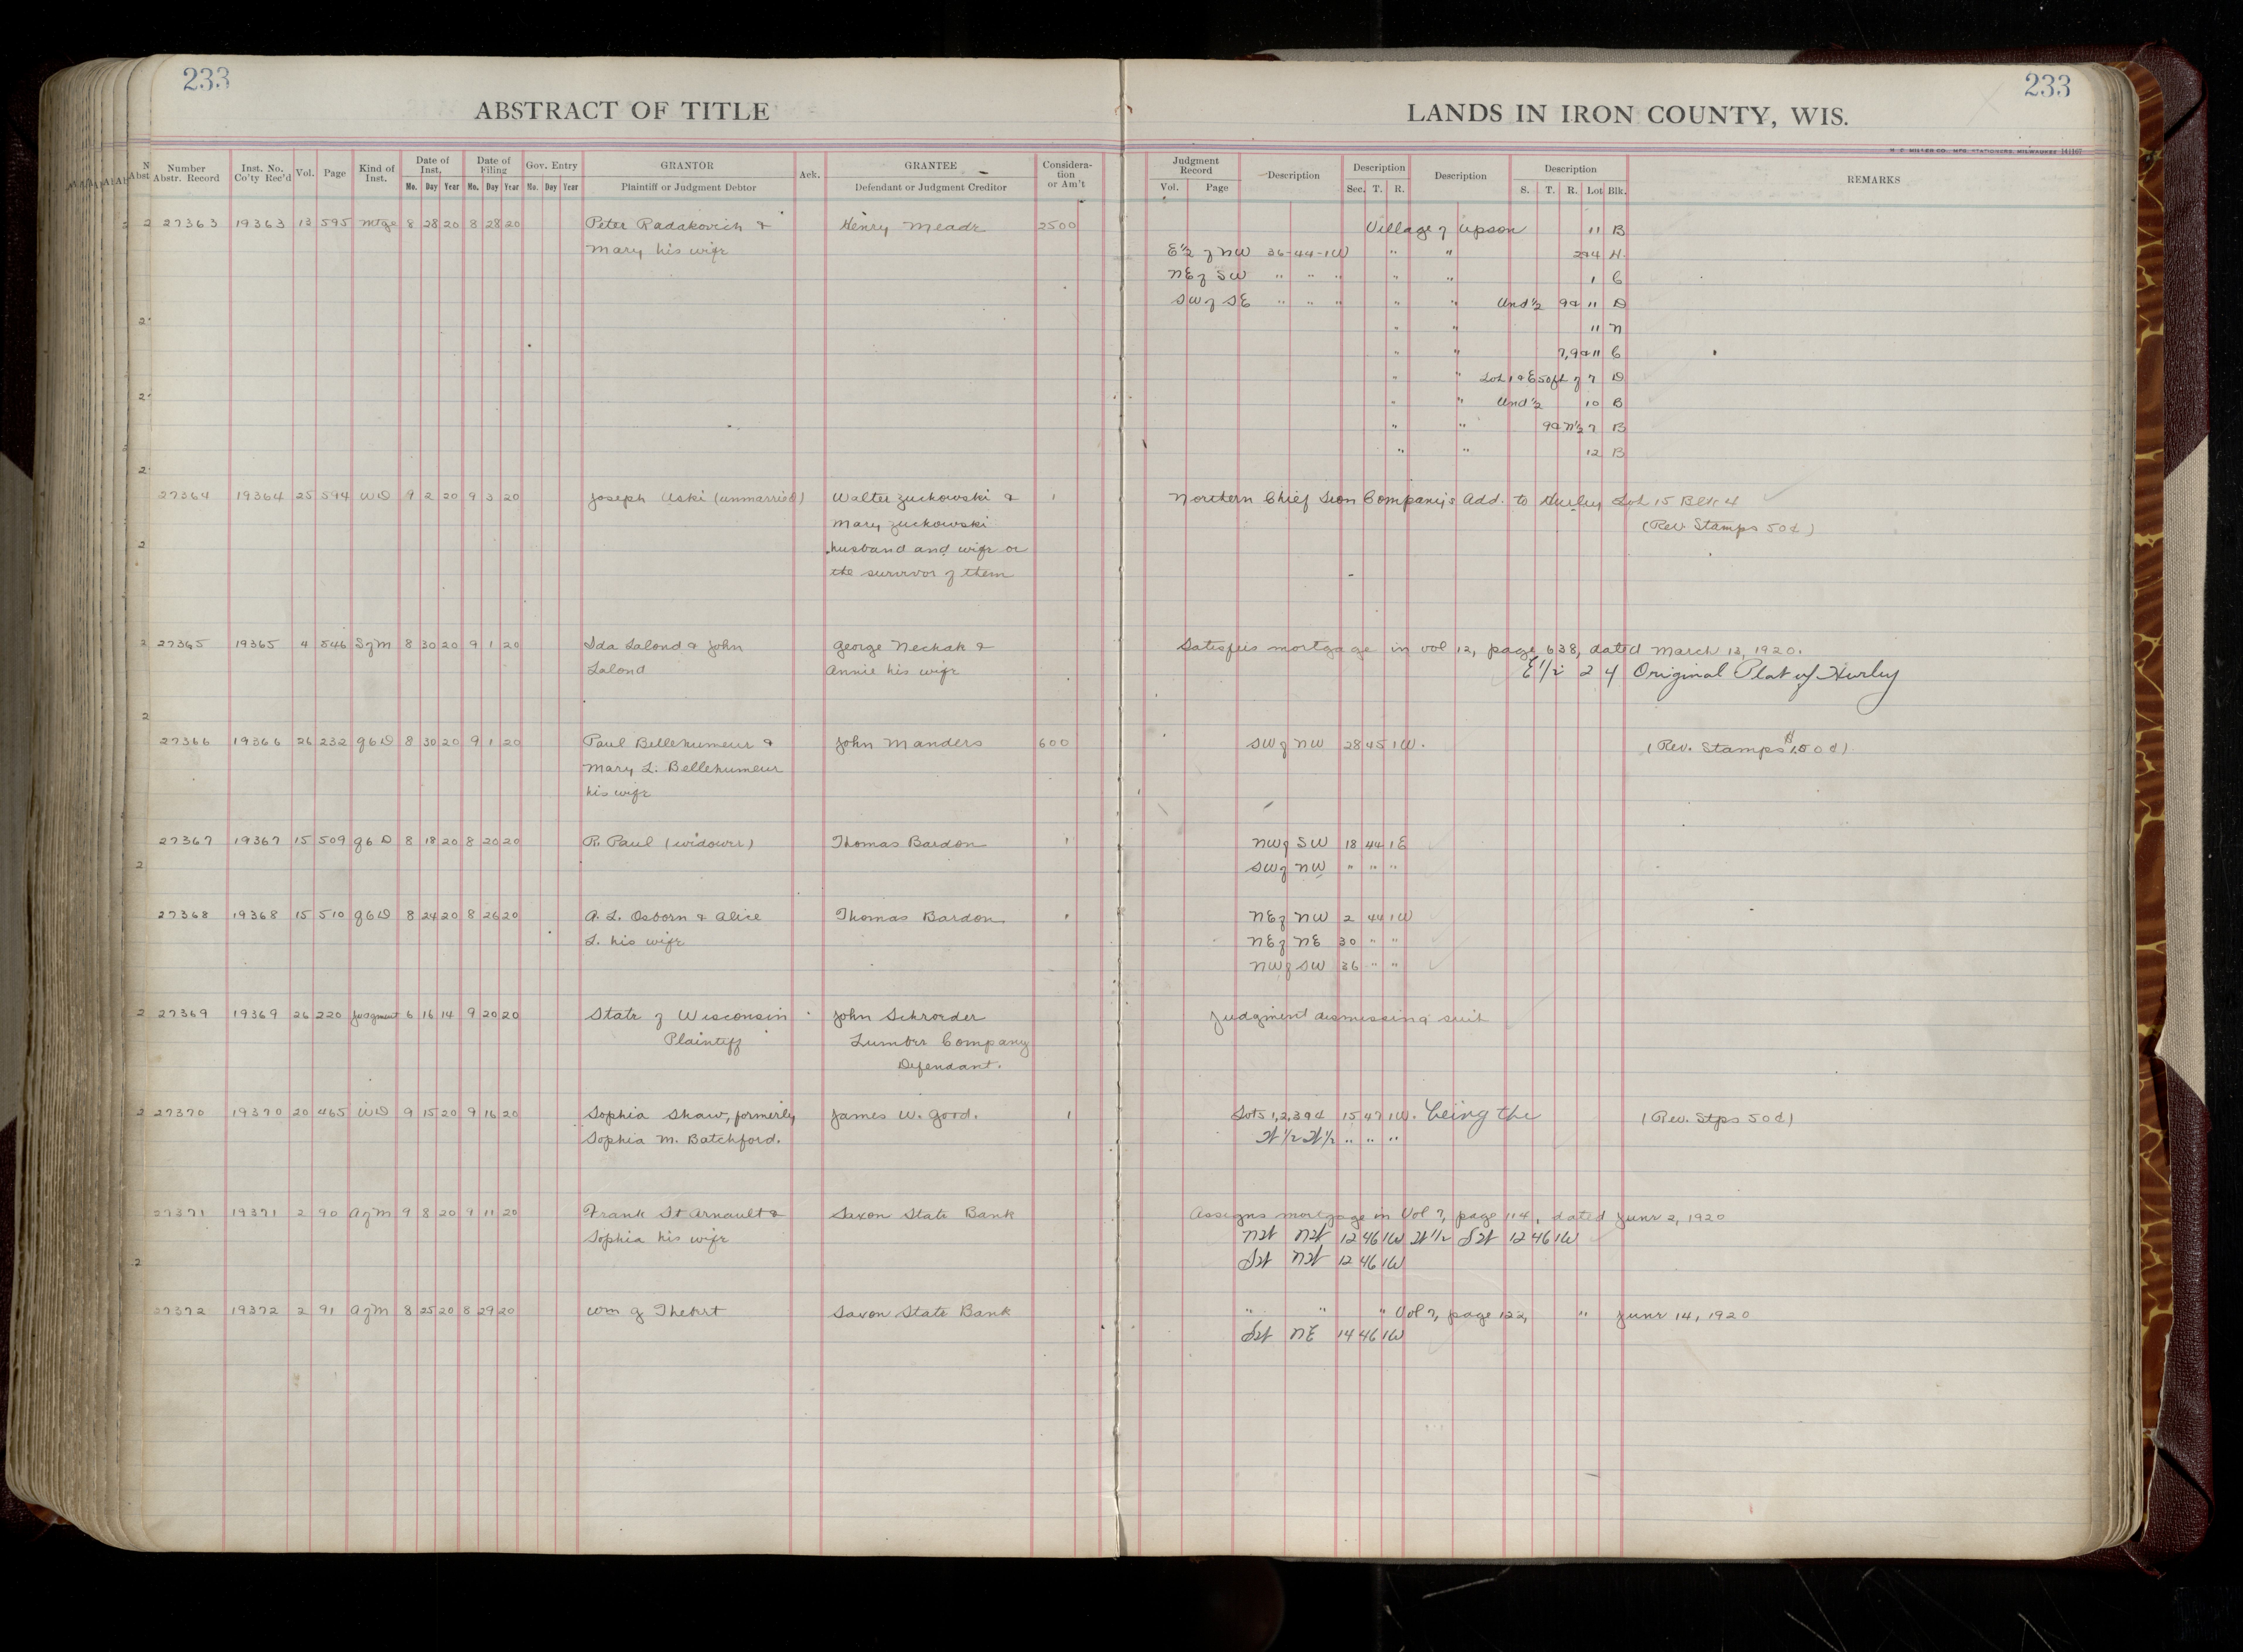 233
233
ABSTRACT OF TITLE
LANDS IN IRON COUNTY, WIS.
H. C. MILLER CO., MFG. STATIONERS, MILWAUKEE 141167
Number Abstr. Record Inst. No. Co'ty Rec'd Vol. Page Kind of Inst. Date of Inst. Mo. Day Year Date of Filing Mo. Day Year Gov. Entry Mo. Day Year GRANTOR Plaintiff or Judgment Debtor Ack. GRANTEE Defendant or Judgment Creditor Considera-tion or Am't
Judgment Record Vol. Page Description Description Sec. T. R. Description Description S. T. R. Lot Blk. REMARKS
27363 19363 13 595 Mtge 8 28 20 8 28 20 Peter Radakovich & Henry Meade 2500 Village of Upson 11 B
Mary his wife E½ of NW 36-44-1W " " 2&4 H
NE of SW " " " " " 1 C
SW of SE " " " " " Und ½ 9& 11 D
" " 11 N
" " 7,9&11 C
" " Lot 1 & E50ft of 7 D
" " Und ½ 10 B
" " 9& N½ 7 B
" " 12 B
27364 19364 25 594 WD 9 2 20 9 3 20 Joseph Uski (unmarried) Walter Zuchowski & 1 Northern Chief Iron Company's Add. to Hurley Lot 15 Blk 4
Mary Zuckowski (Rev. Stamps 50¢)
husband and wife or
the survivor of them
27365 19365 4 546 S of M 8 30 20 9 1 20 Ida Lalond & John George Nechak & Satisfies mortgage in vol 12, page 638, dated March 13, 1920.
Lalond Annie his wife E 1/2 2 4 Original Plat of Hurley
27366 19366 26 232 QCD 8 30 20 9 1 20 Paul Bellehumeur & John Manders 600 SW of NW 28 45 1W. (Rev. Stamps $1.50¢)
Mary L. Bellehumeur
his wife
27367 19367 15 509 QCD 8 18 20 8 20 20 R. Paul (widower) Thomas Bardon 1 NW of SW 18 44 1E
SW of NW " " "
27368 19368 15 510 QCD 8 24 20 8 26 20 A. L. Osborn & Alice Thomas Bardon 1 NE of NW 2 44 1W
L. his wife NE of NE 30 " "
NW of SW 36 " "
27369 19369 26 220 Judgment 6 16 14 9 20 20 State of Wisconsin John Schroeder Judgment dismissing suit
Plaintiff Lumber Company
Defendant.
27370 19370 20 465 WD 9 15 20 9 16 20 Sophia Shaw, formerly James W. Good. 1 Lots 1,2,3&4 15 47 1W. being the (Rev. Stps 50¢)
Sophia M. Batchford. W 1/2 W 1/2 " " "
27371 19371 2 90 A of M 9 8 20 9 11 20 Frank St Arnault & Saxon State Bank Assigns mortgage in Vol 7, page 114, dated June 2, 1920
Sophia his wife NW NW 12 46 1W W 1/2 SW 12 46 1W
SW NW 12 46 1W
27372 19372 2 91 A of M 8 25 20 8 29 20 Wm G Thebert Saxon State Bank " " " Vol 7, page 122, " June 14, 1920
SW NE 14 46 1W